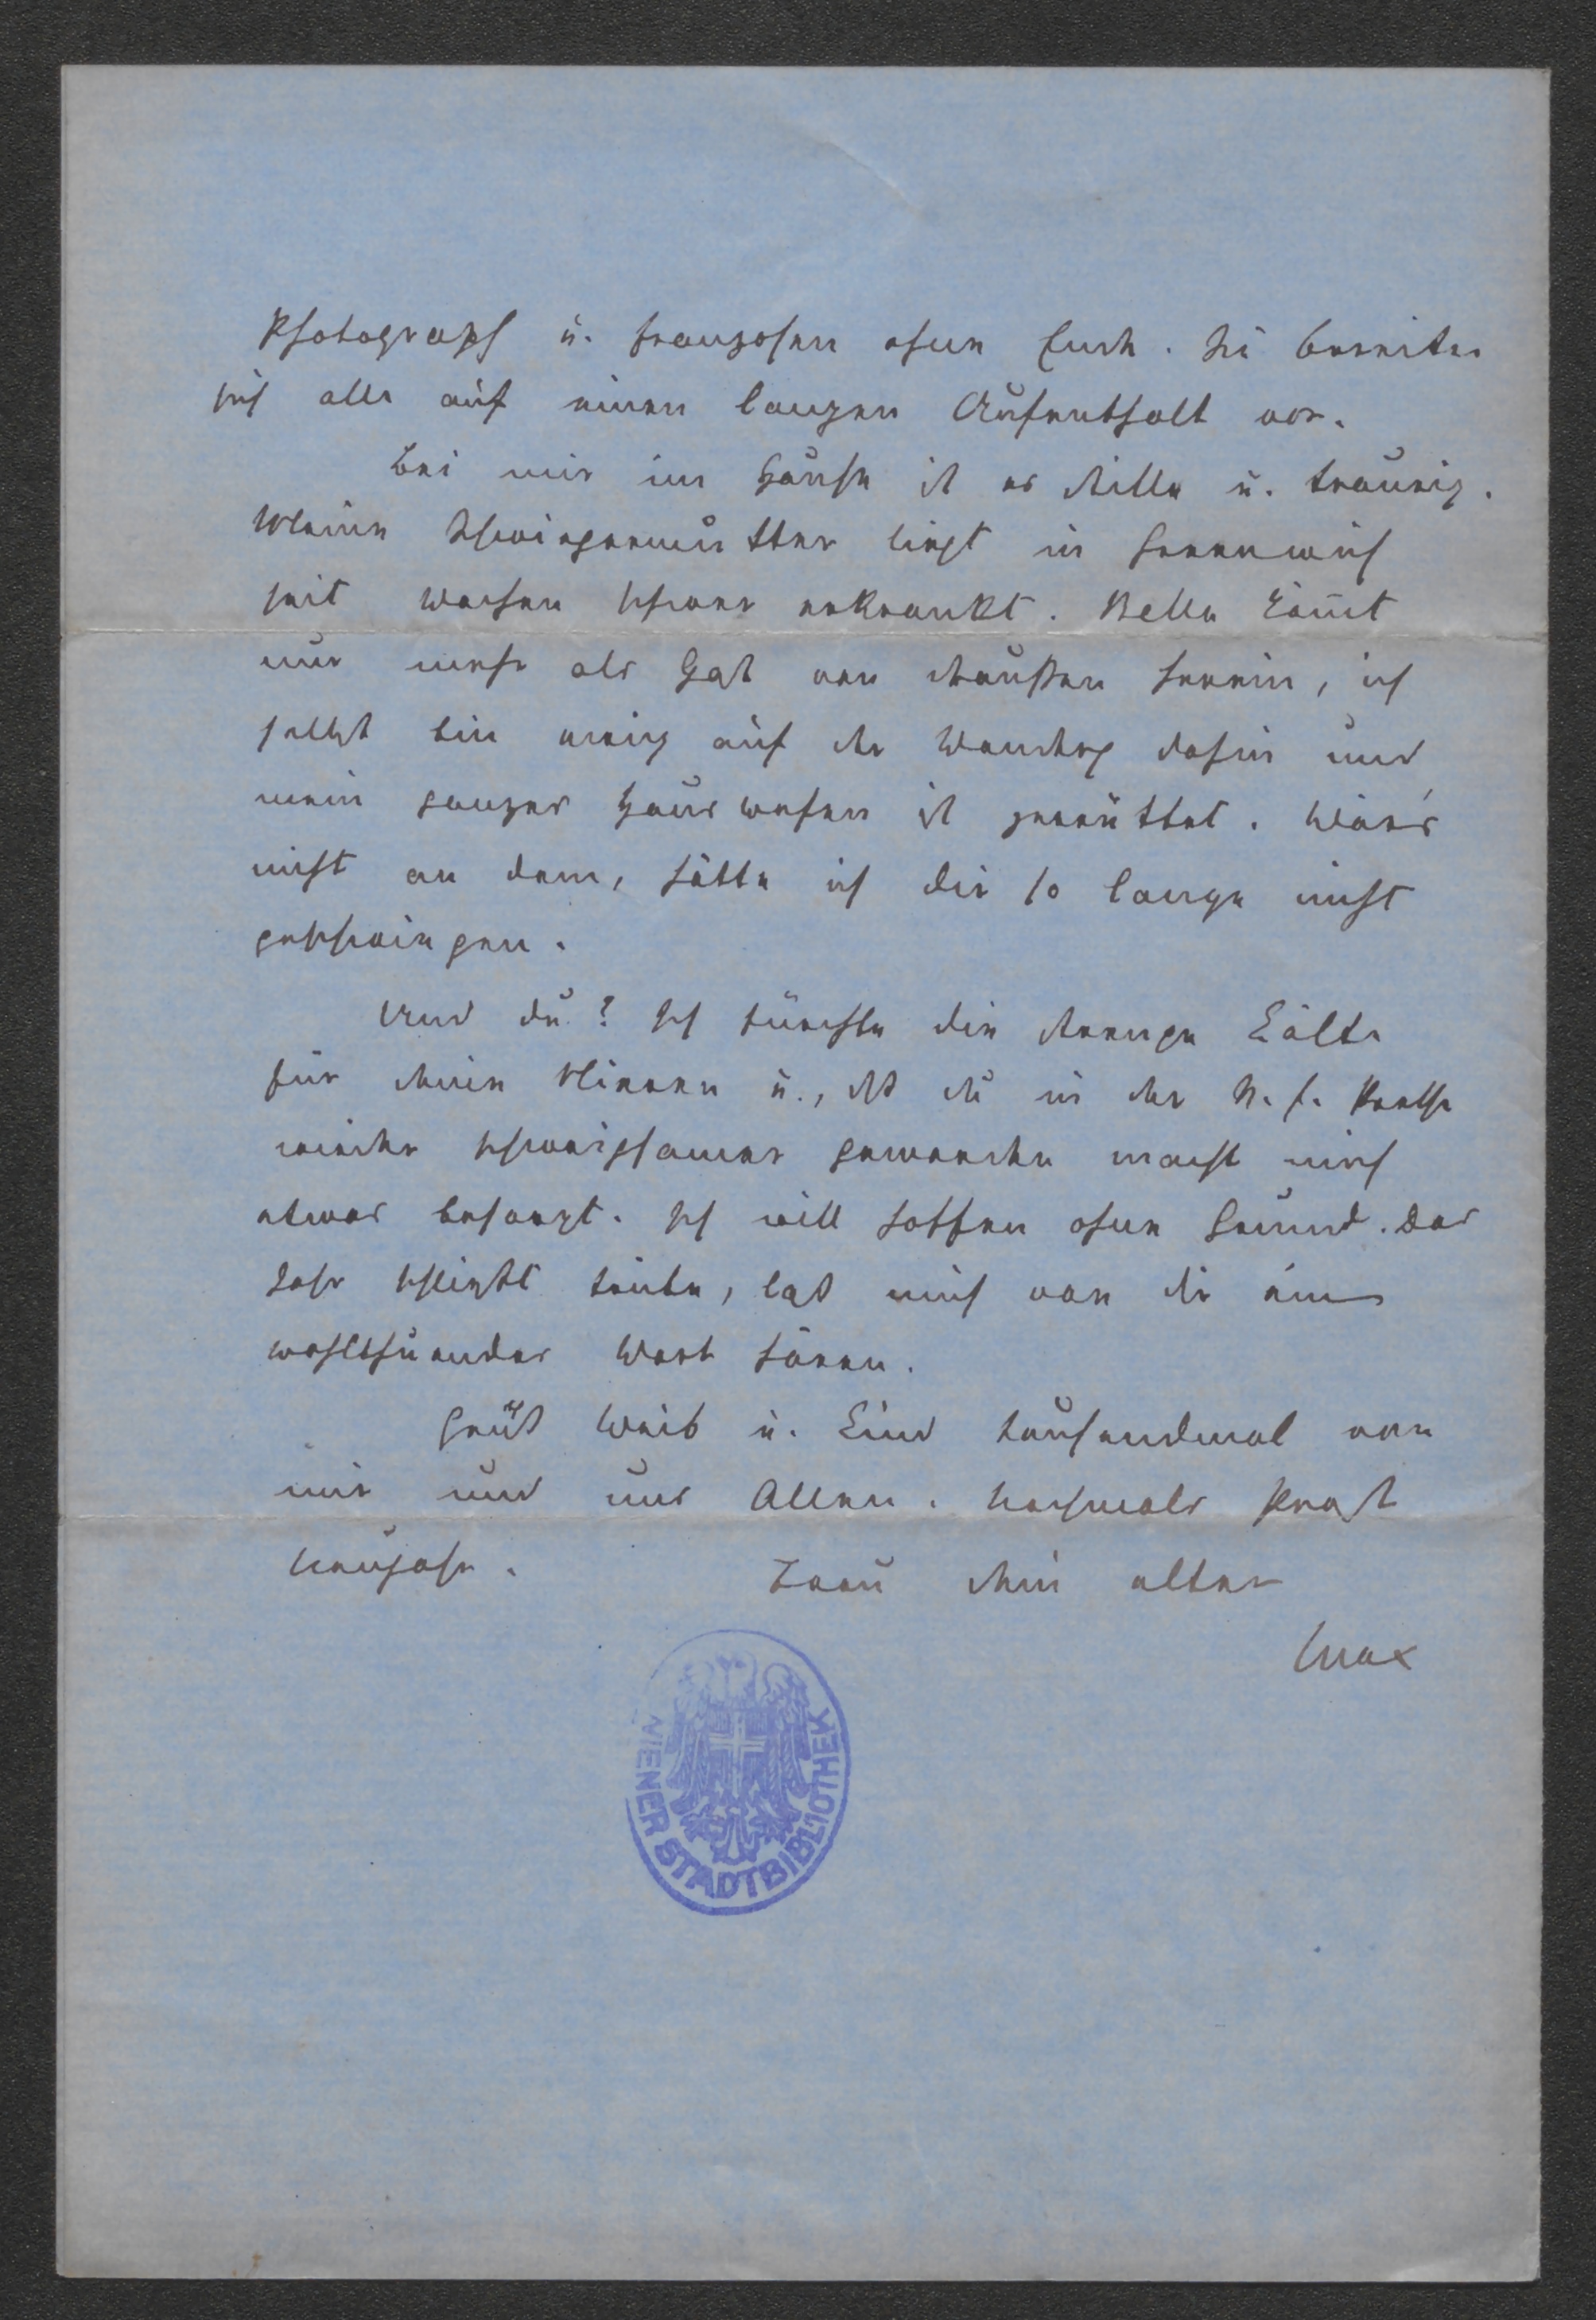 Photograph u. Franzosen ohne Ende. Sie bereiten
sich alle auf einen langen Aufenthalt vor.
Bei mir im Hause ist es stille u. traurig.
Meine Schwiegermutter liegt in Greenwich
seit Wochen schwer erkrankt. Bella kom̅t
nur mehr als Gast von draußen herein, ich
selbst bin ewig auf der Wanderg dahin und
mein ganzes Hauswesen ist zerrüttet. Wär's
nicht an dem, hätte ich Dir so lange nicht
geschwiegen.
Und Du? Ich fürchte die strenge Kälte
für Deine Nieren u., daß Du in der N. f. Presse
wieder schweigsamer geworden macht mich
etwas besorgt. Ich will hoffen ohne Grund. Das
Jahr schließt heute, laß mich von Dir ein
wohlthuendes Wort hören.
Grüß Weib u. Kind tausendmal von
mir und uns Allen. Nochmals Prost
Neujahr.
Treu Dein alter
Max
WIENER STADTBIBLIOTHEK